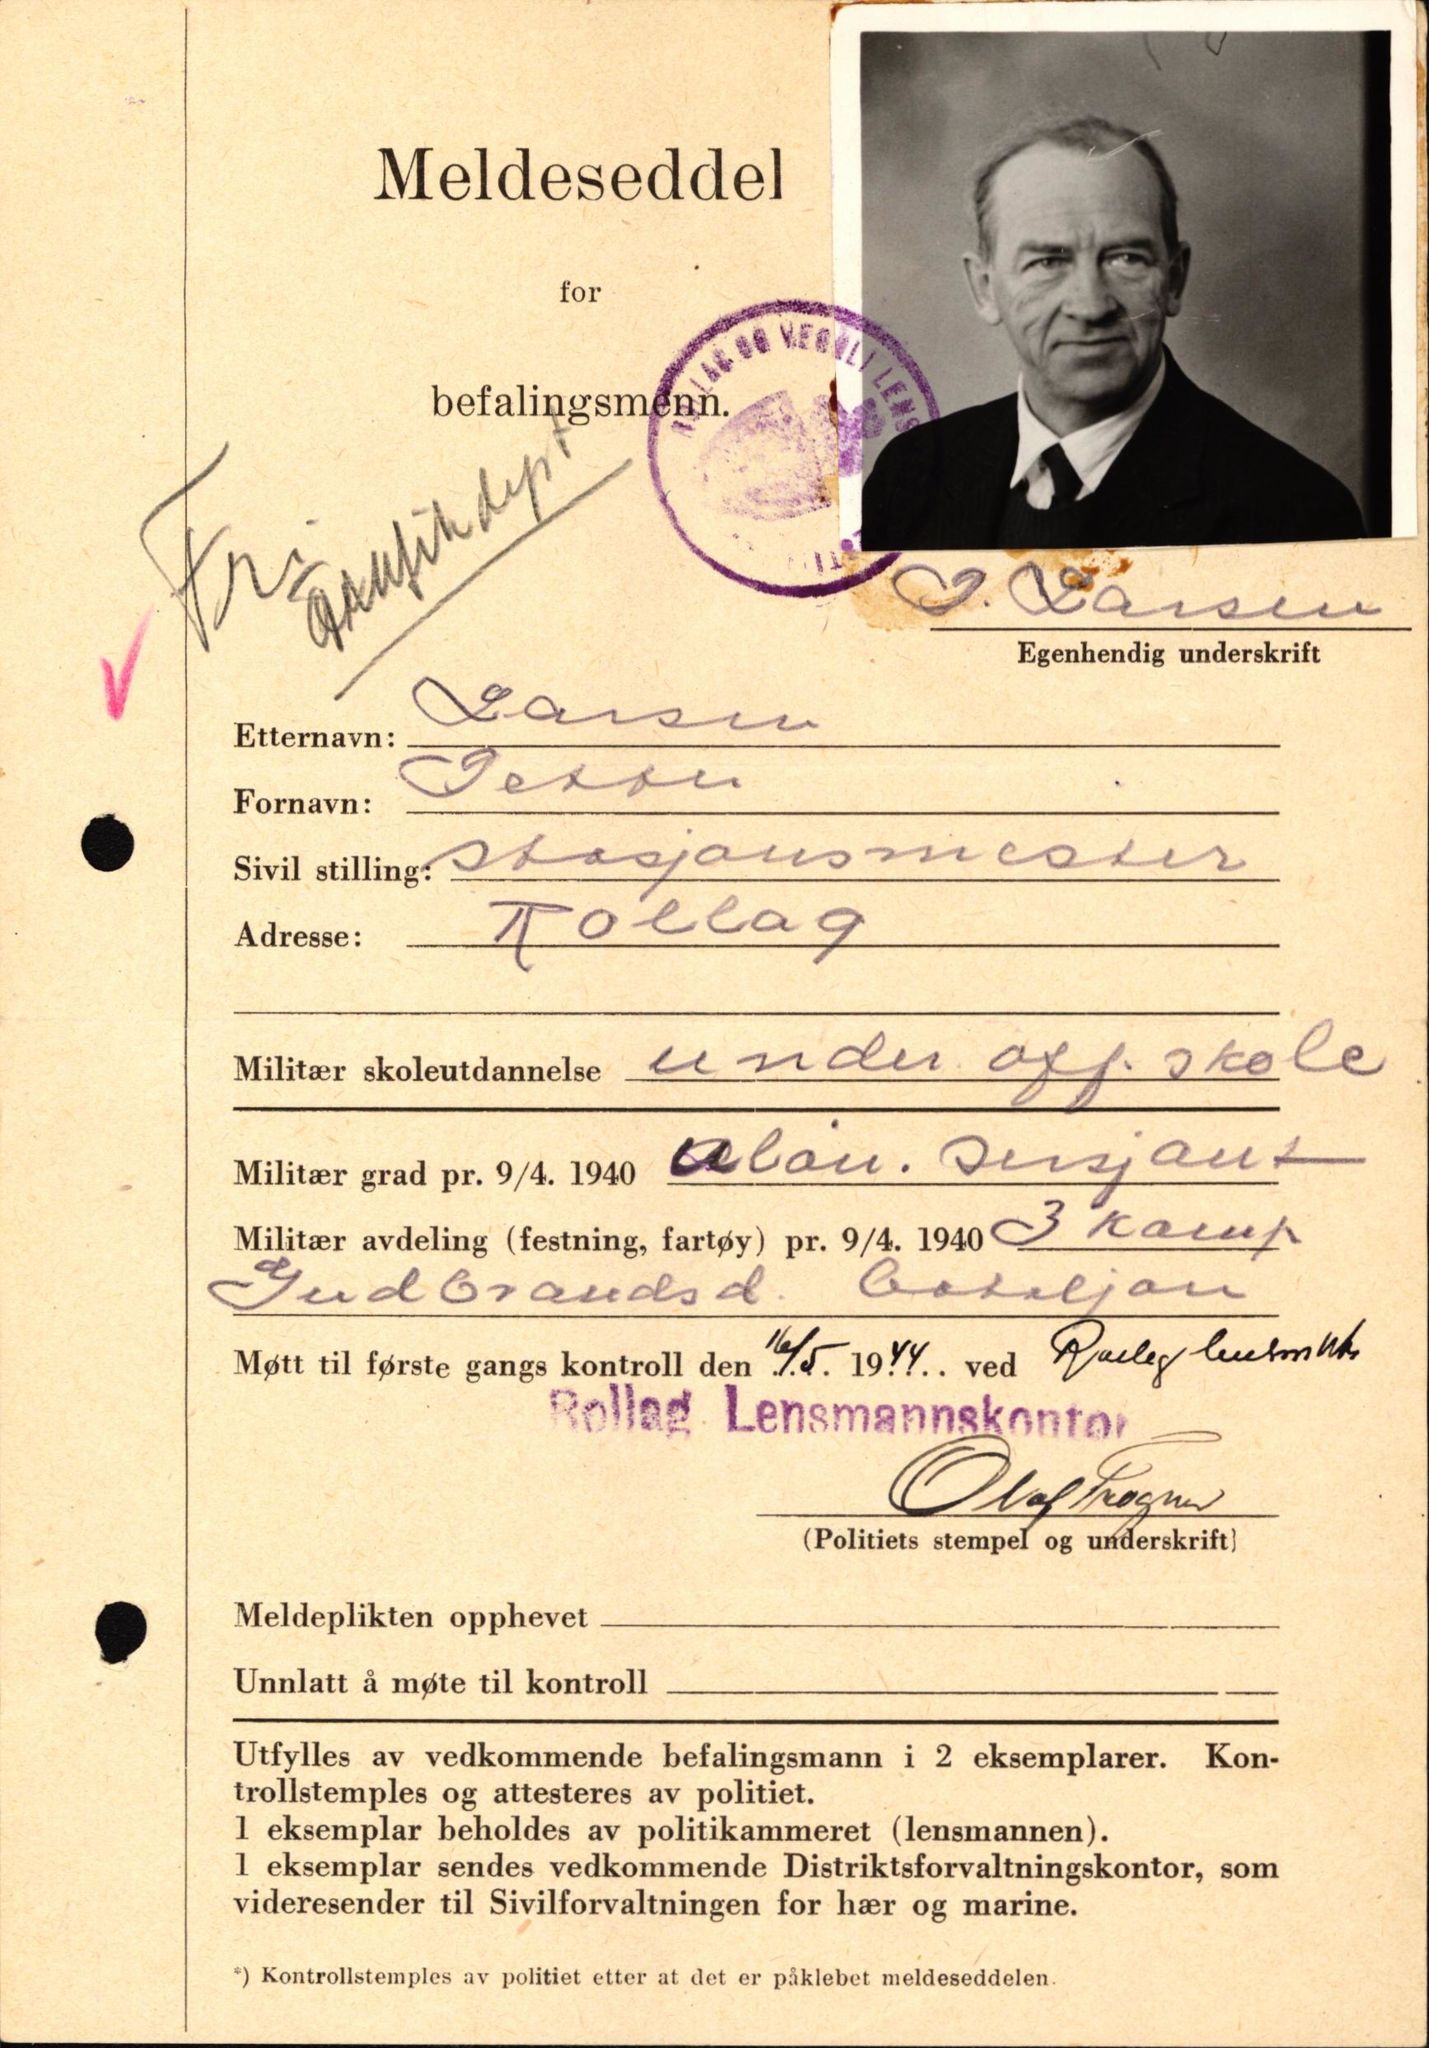 Meldeseddel
for
befalingsmenn.
ROLLAG OG VEGGLI LENS
Fri
P. Larsen
Egenhendig underskrift
Etternavn: Larsen
Fornavn: Petter
Sivil stilling: stasjonsmester
Adresse: Rollag
Militær skoleutdannelse under off. skole
Militær grad pr. 9/4. 1940 sersjant
Militær avdeling (festning, fartøy) pr. 9/4. 1940 3 komp
Gudbrandsd. bataljon
Møtt til første gangs kontroll den 16/5. 1944. ved Rollag
Rollag Lensmannskontor
Olaf Trogner
(Politiets stempel og underskrift)
Meldeplikten opphevet
Unnlatt å møte til kontroll
Utfylles av vedkommende befalingsmann i 2 eksemplarer. Kon-
trollstemples og attesteres av politiet.
1 eksemplar beholdes av politikammeret (lensmannen).
1 eksemplar sendes vedkommende Distriktsforvaltningskontor, som
videresender til Sivilforvaltningen for hær og marine.
*) Kontrollstemples av politiet etter at det er påklebet meldeseddelen.